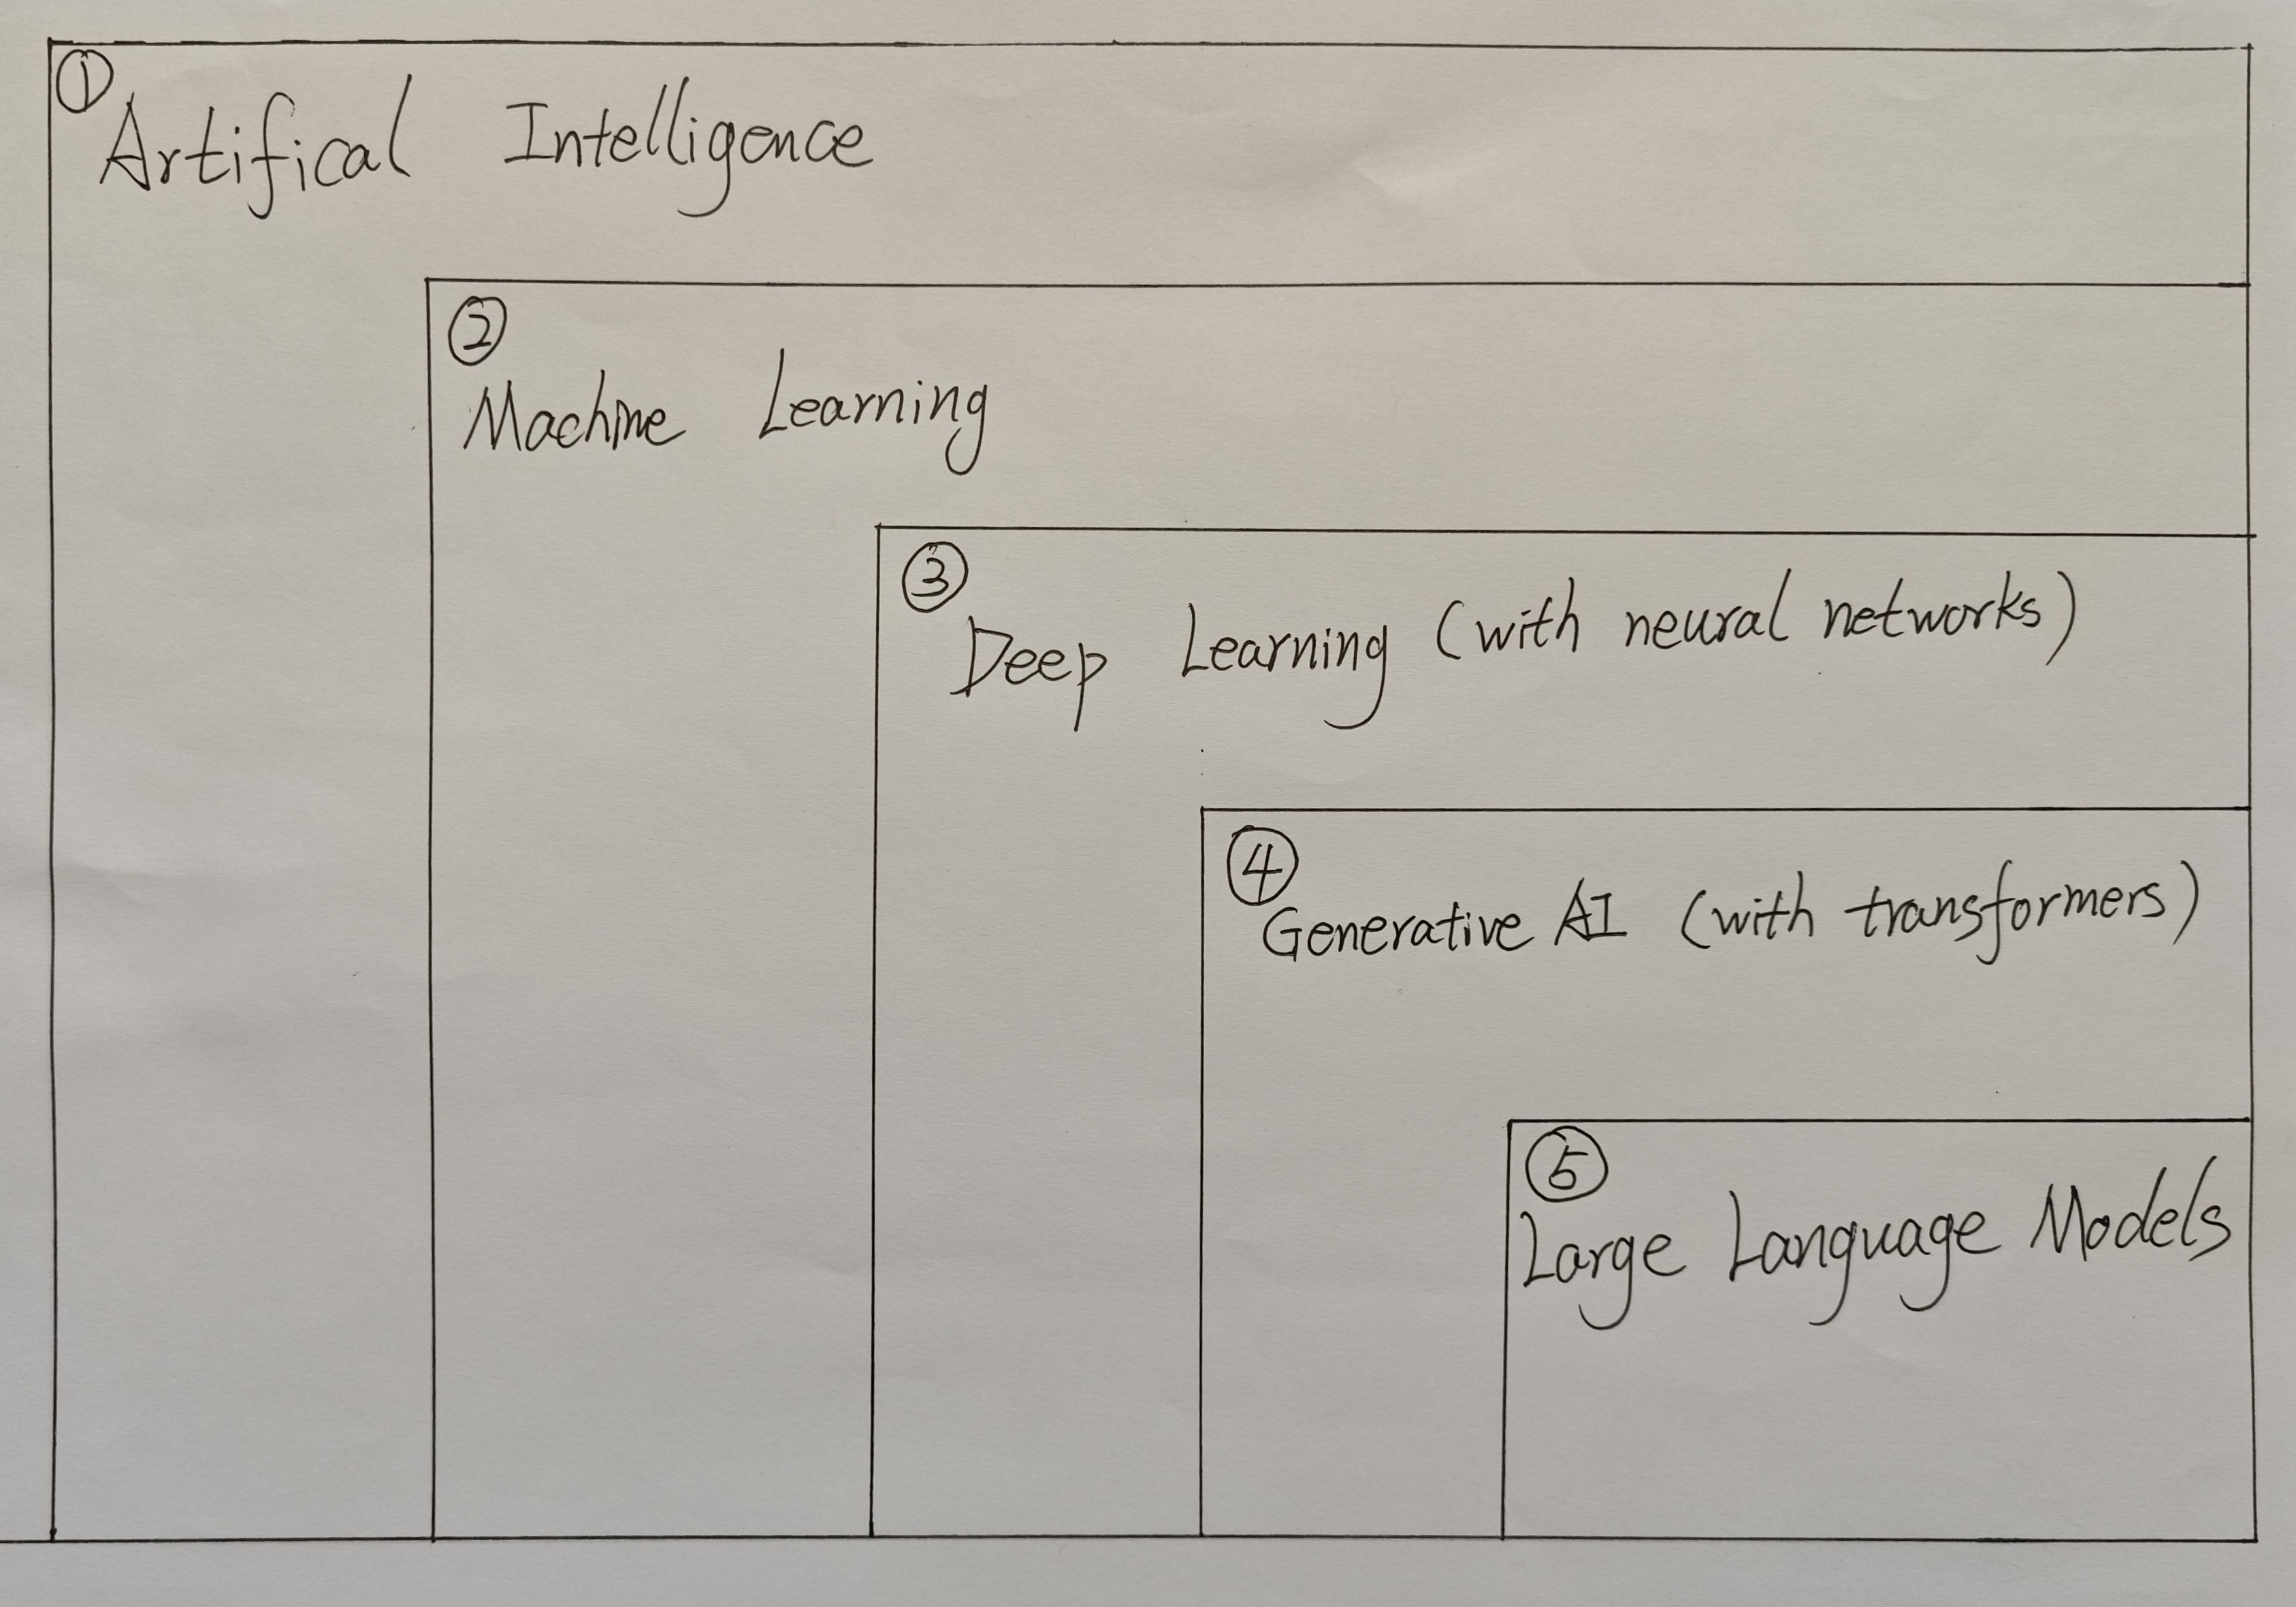 ①
Artifical Intelligence
②
Machine Learning
③
Deep Learning (with neural networks)
④
Generative AI (with transformers)
⑤
Large Language Models